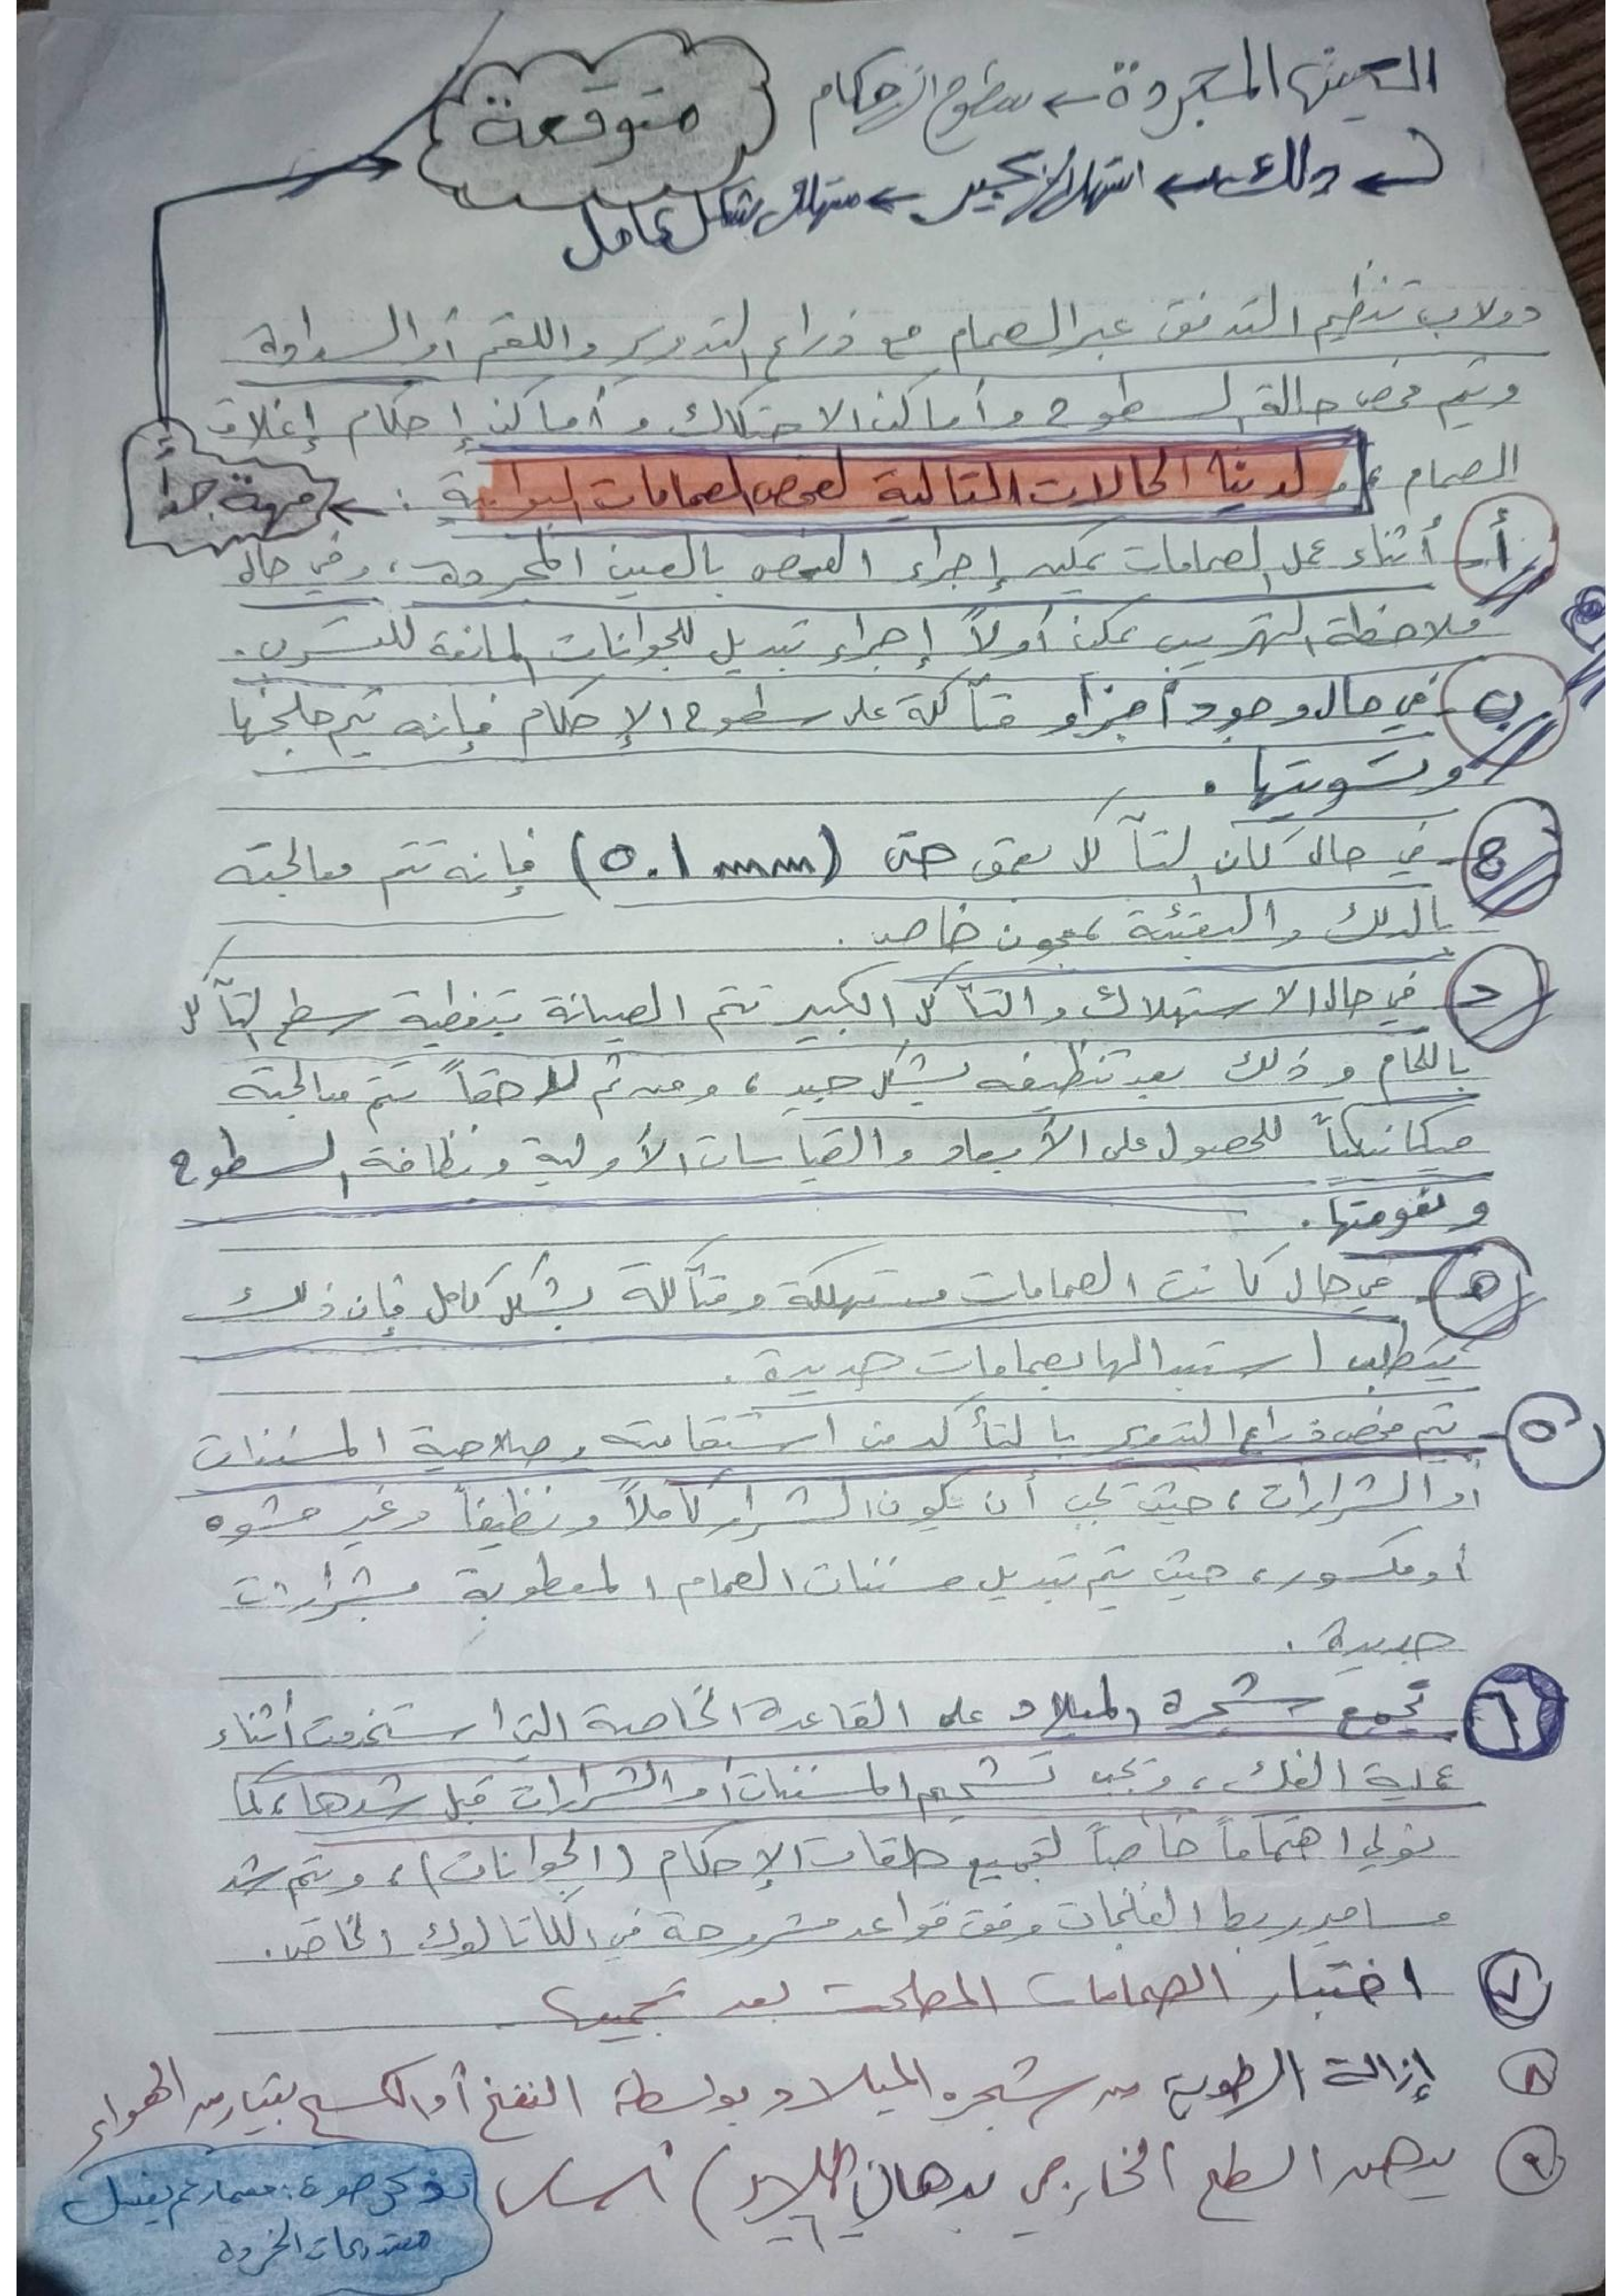 العين المجردة ← سطوح الإحكام
متوقعة
دلك ← استهلاك كبير ← مستهلك بشكل كامل
دولاب تنظيم التدفق عبر الصمام مع ذراع التدوير واللقم أو السدادة
ويتم فحص حالة السطوح وأماكن الاحتكاك وأماكن إحكام إغلاق
الصمام، لدينا الحالات التالية لفحص الصمامات البوابية :
مهمة جداً
أ- أثناء عمل الصمامات يمكن إجراء الفحص بالعين المجردة، وفي حال
ملاحظة التهريب يمكن أولاً إجراء تبديل للجوانات المانعة للتسرب.
ب- في حال وجود أجزاء متآكلة على سطوح الإحكام فإنه يتم جلخها
وتسويتها .
ج- في حال كان التآكل بعمق حتى (0.1 mm) فإنه تتم معالجته
بالدلك والتعبئة بمعجون خاص .
د- في حال الاستهلاك والتآكل الكبير تتم الصيانة بتغطية سطح التآكل
باللحام وذلك بعد تنظيفه بشكل جيد، ومن ثم لاحقاً تتم معالجته
ميكانيكياً للحصول على الأبعاد والقياسات الأولية ونظافة السطوح
ونعومتها .
ه- في حال كانت الصمامات مستهلكة ومتآكلة بشكل كامل فإن ذلك
يتطلب استبدالها بصمامات جديدة .
٥- يتم فحص ذراع التدوير بالتأكد من استقامته وصلاحية المسننات
أو الشرارات، حيث يجب أن يكون الشرار كاملاً ونظيفاً وغير مشوه
أو مكسور، حيث يتم تبديل مسننات الصمام المعطوبة بشرارات
جديدة .
٦ تجمع شجرة الميلاد على القاعدة الخاصة التي استخدمت أثناء
عملية الفك، ويجب تشحيم المسننات أو الشرارات قبل شدها، كما
نولي اهتماماً خاصاً لتجميع حلقات الإحكام (الجوانات)، ويتم شد
مسامير ربط الفلنجات وفق قواعد مشروحة في الكاتالوك الخاص.
٧ اختبار الصمامات المصلحة بعد تجميعها
٨ إزالة الرطوبة من شجرة الميلاد بواسطة النفخ أو الكسح بتيار من الهواء
٩ يدهن السطح الخارجي بدهان أساس